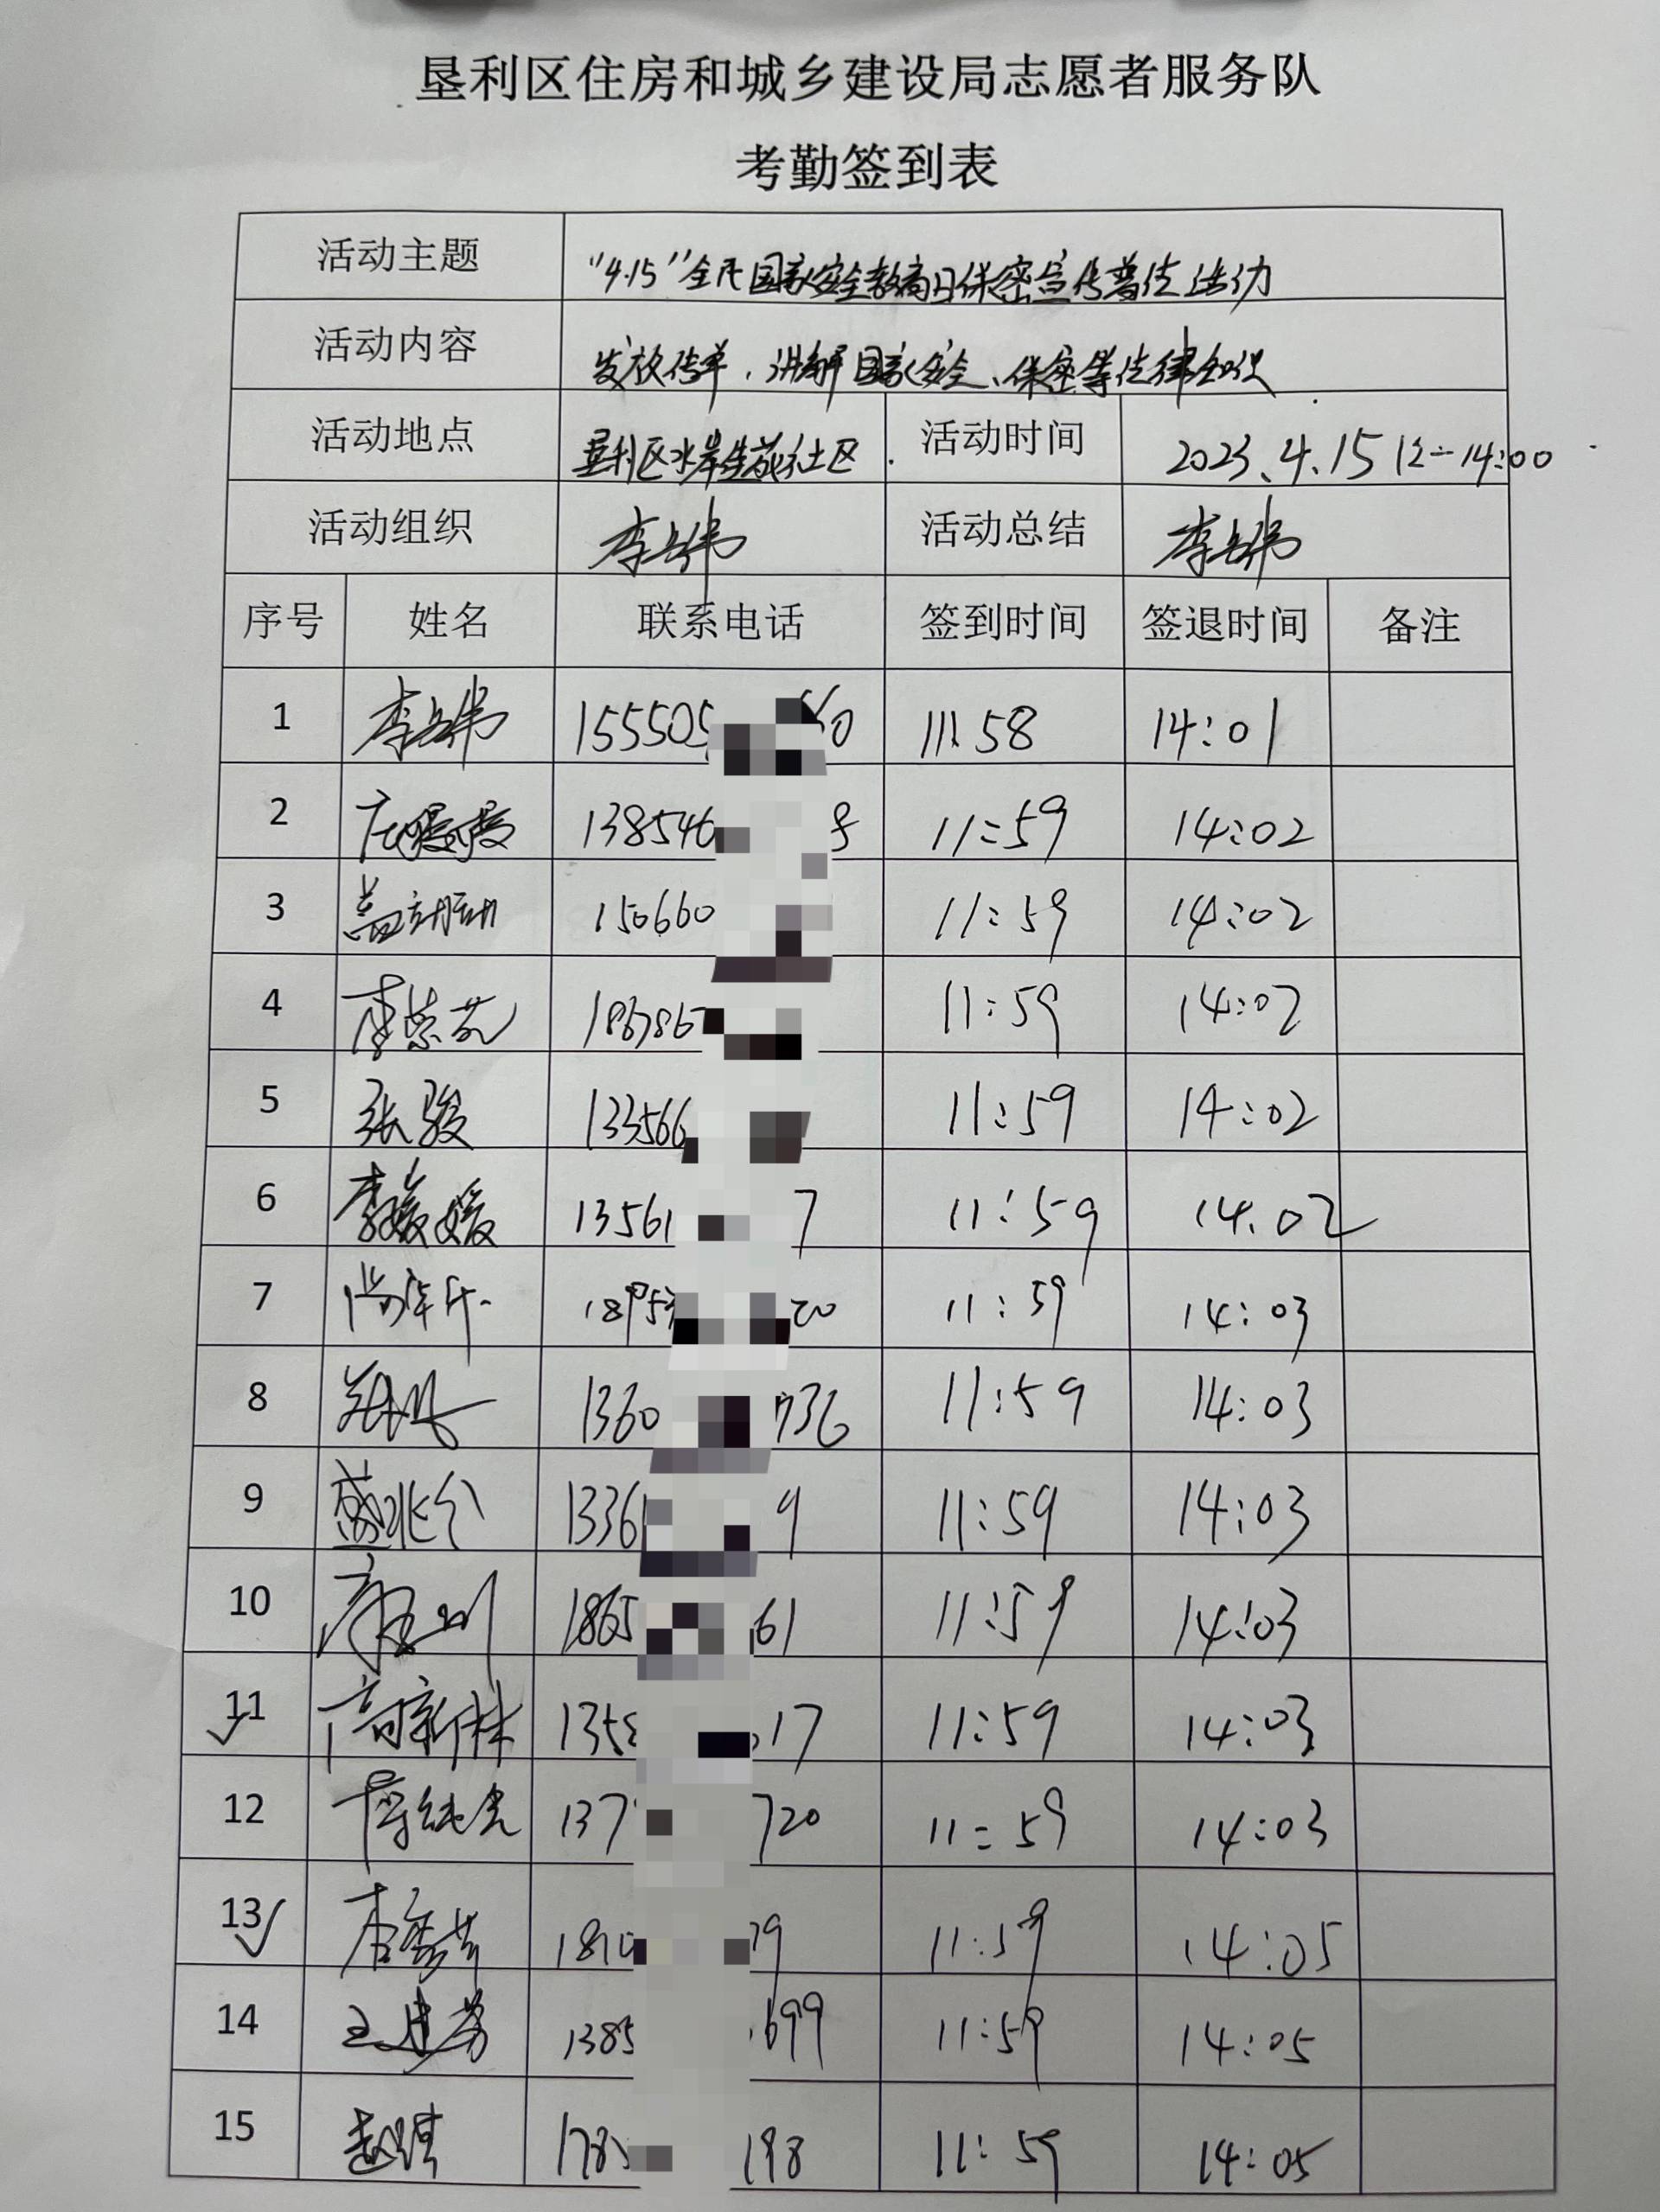 垦利区住房和城乡建设局志愿者服务队
考勤签到表
活动主题 "4.15"全民国家安全教育日保密宣传普法活动
活动内容 发放传单、讲解国家安全、保密等法律知识
活动地点 垦利区水岸生茂社区 活动时间 2023.4.15 12-14:00
活动组织 活动总结
序号 姓名 联系电话 签到时间 签退时间 备注
1 155505 60 11:58 14:01
2 138546 8 11:59 14:02
3 盖动动 150660 11:59 14:02
4 186786 11:59 14:02
5 张骏 133566 11:59 14:02
6 李媛媛 13561 7 11:59 14.02
7 1895 20 11:59 14:03
8 1360 736 11:59 14:03
9 盛兆 1336 9 11:59 14:03
10 1865 61 11:59 14:03
11 高新林 1358 17 11:59 14:03
12 137 720 11:59 14:03
13 李秀芳 1810 79 11:59 14:05
14 王建芳 1385 699 11:59 14:05
15 赵 1785 198 11:59 14:05